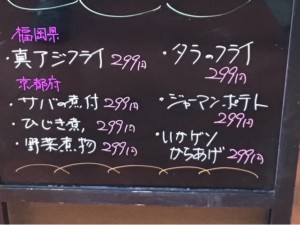 福岡県
・真アジフライ 299円
京都府
・サバの煮付 299円
・ひじき煮 299円
・野菜煮物 299円
・タラのフライ
299円
・ジャーマンポテト
299円
・いかゲソ
からあげ 299円